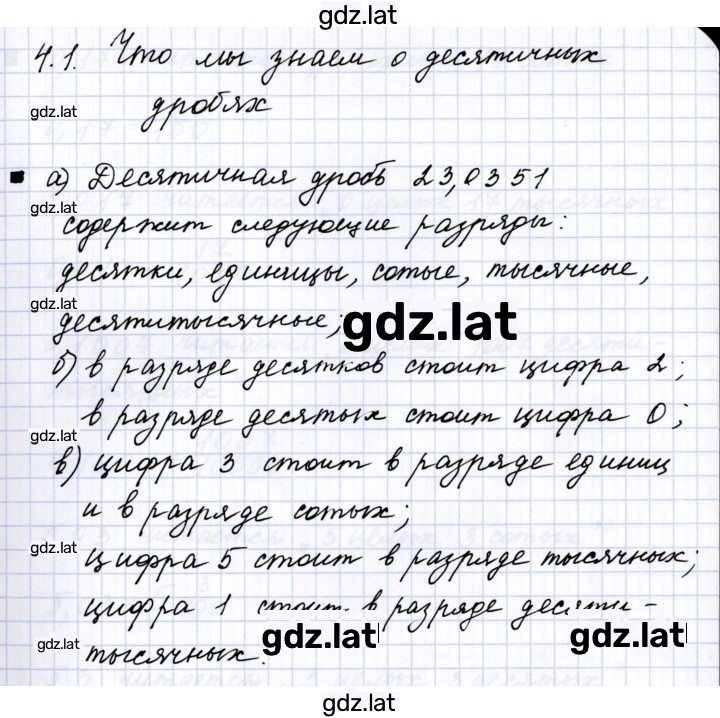 gdz.lat
4.1. Что мы знаем о десятичных
дробях
gdz.lat
а) Десятичная дробь 23,0351
gdz.lat
содержит следующие разряды:
десятки, единицы, сотые, тысячные,
gdz.lat
десятитысячные;
gdz.lat
б) в разряде десятков стоит цифра 2;
в разряде десятых стоит цифра 0;
gdz.lat
в) цифра 3 стоит в разряде единиц
и в разряде сотых;
gdz.lat
цифра 5 стоит в разряде тысячных;
цифра 1 стоит в разряде десяти-
gdz.lat gdz.lat gdz.lat
тысячных.
gdz.lat